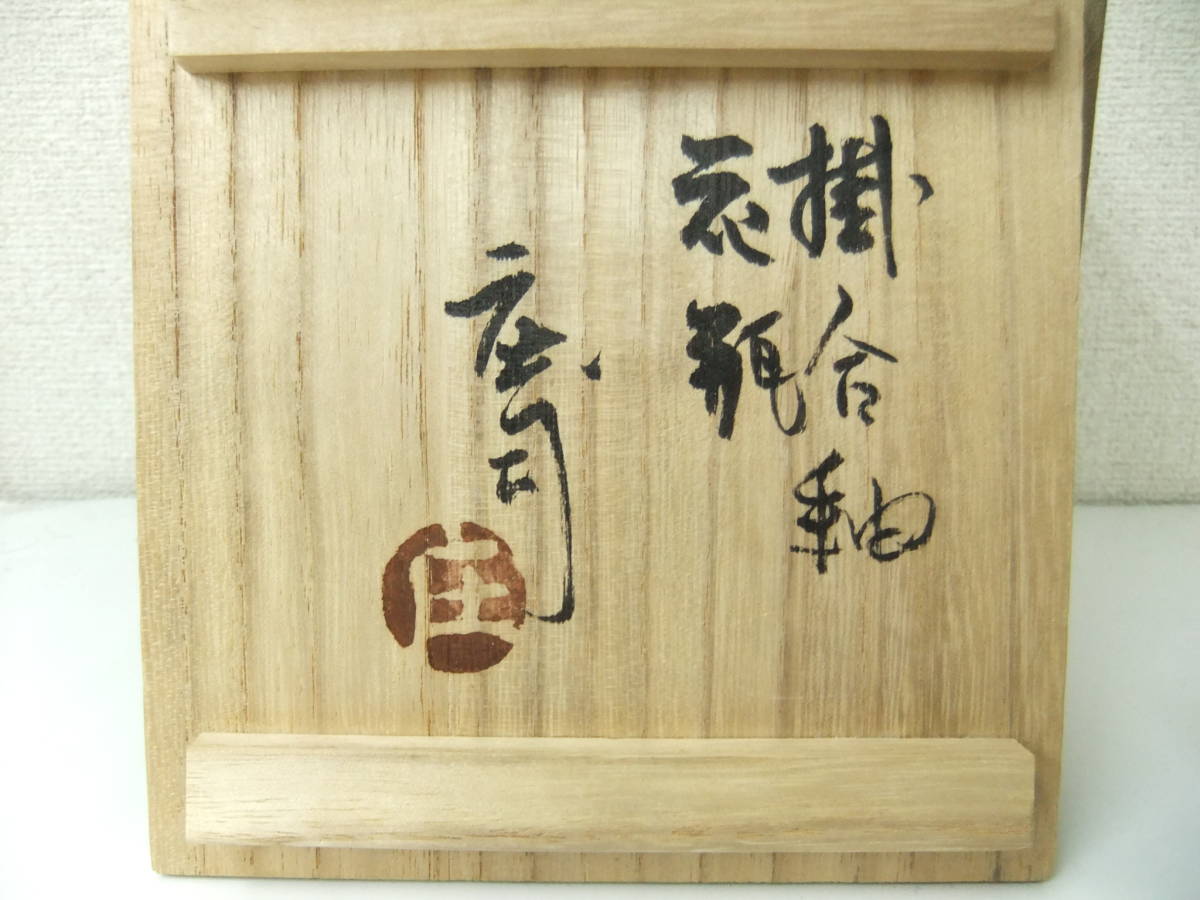 掛合釉
花瓶
庄司
庄